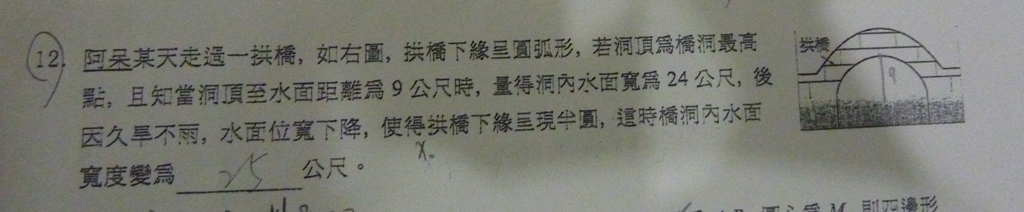 12. 阿呆某天走過一拱橋，如右圖，拱橋下緣呈圓弧形，若洞頂爲橋洞最高
點，且知當洞頂至水面距離爲 9 公尺時，量得洞內水面寬爲 24 公尺，後
因久旱不雨，水面位寬下降，使得拱橋下緣呈現半圓，這時橋洞內水面
寬度變爲 25 公尺。
拱橋
9
x.
圓心爲 M，則四邊形